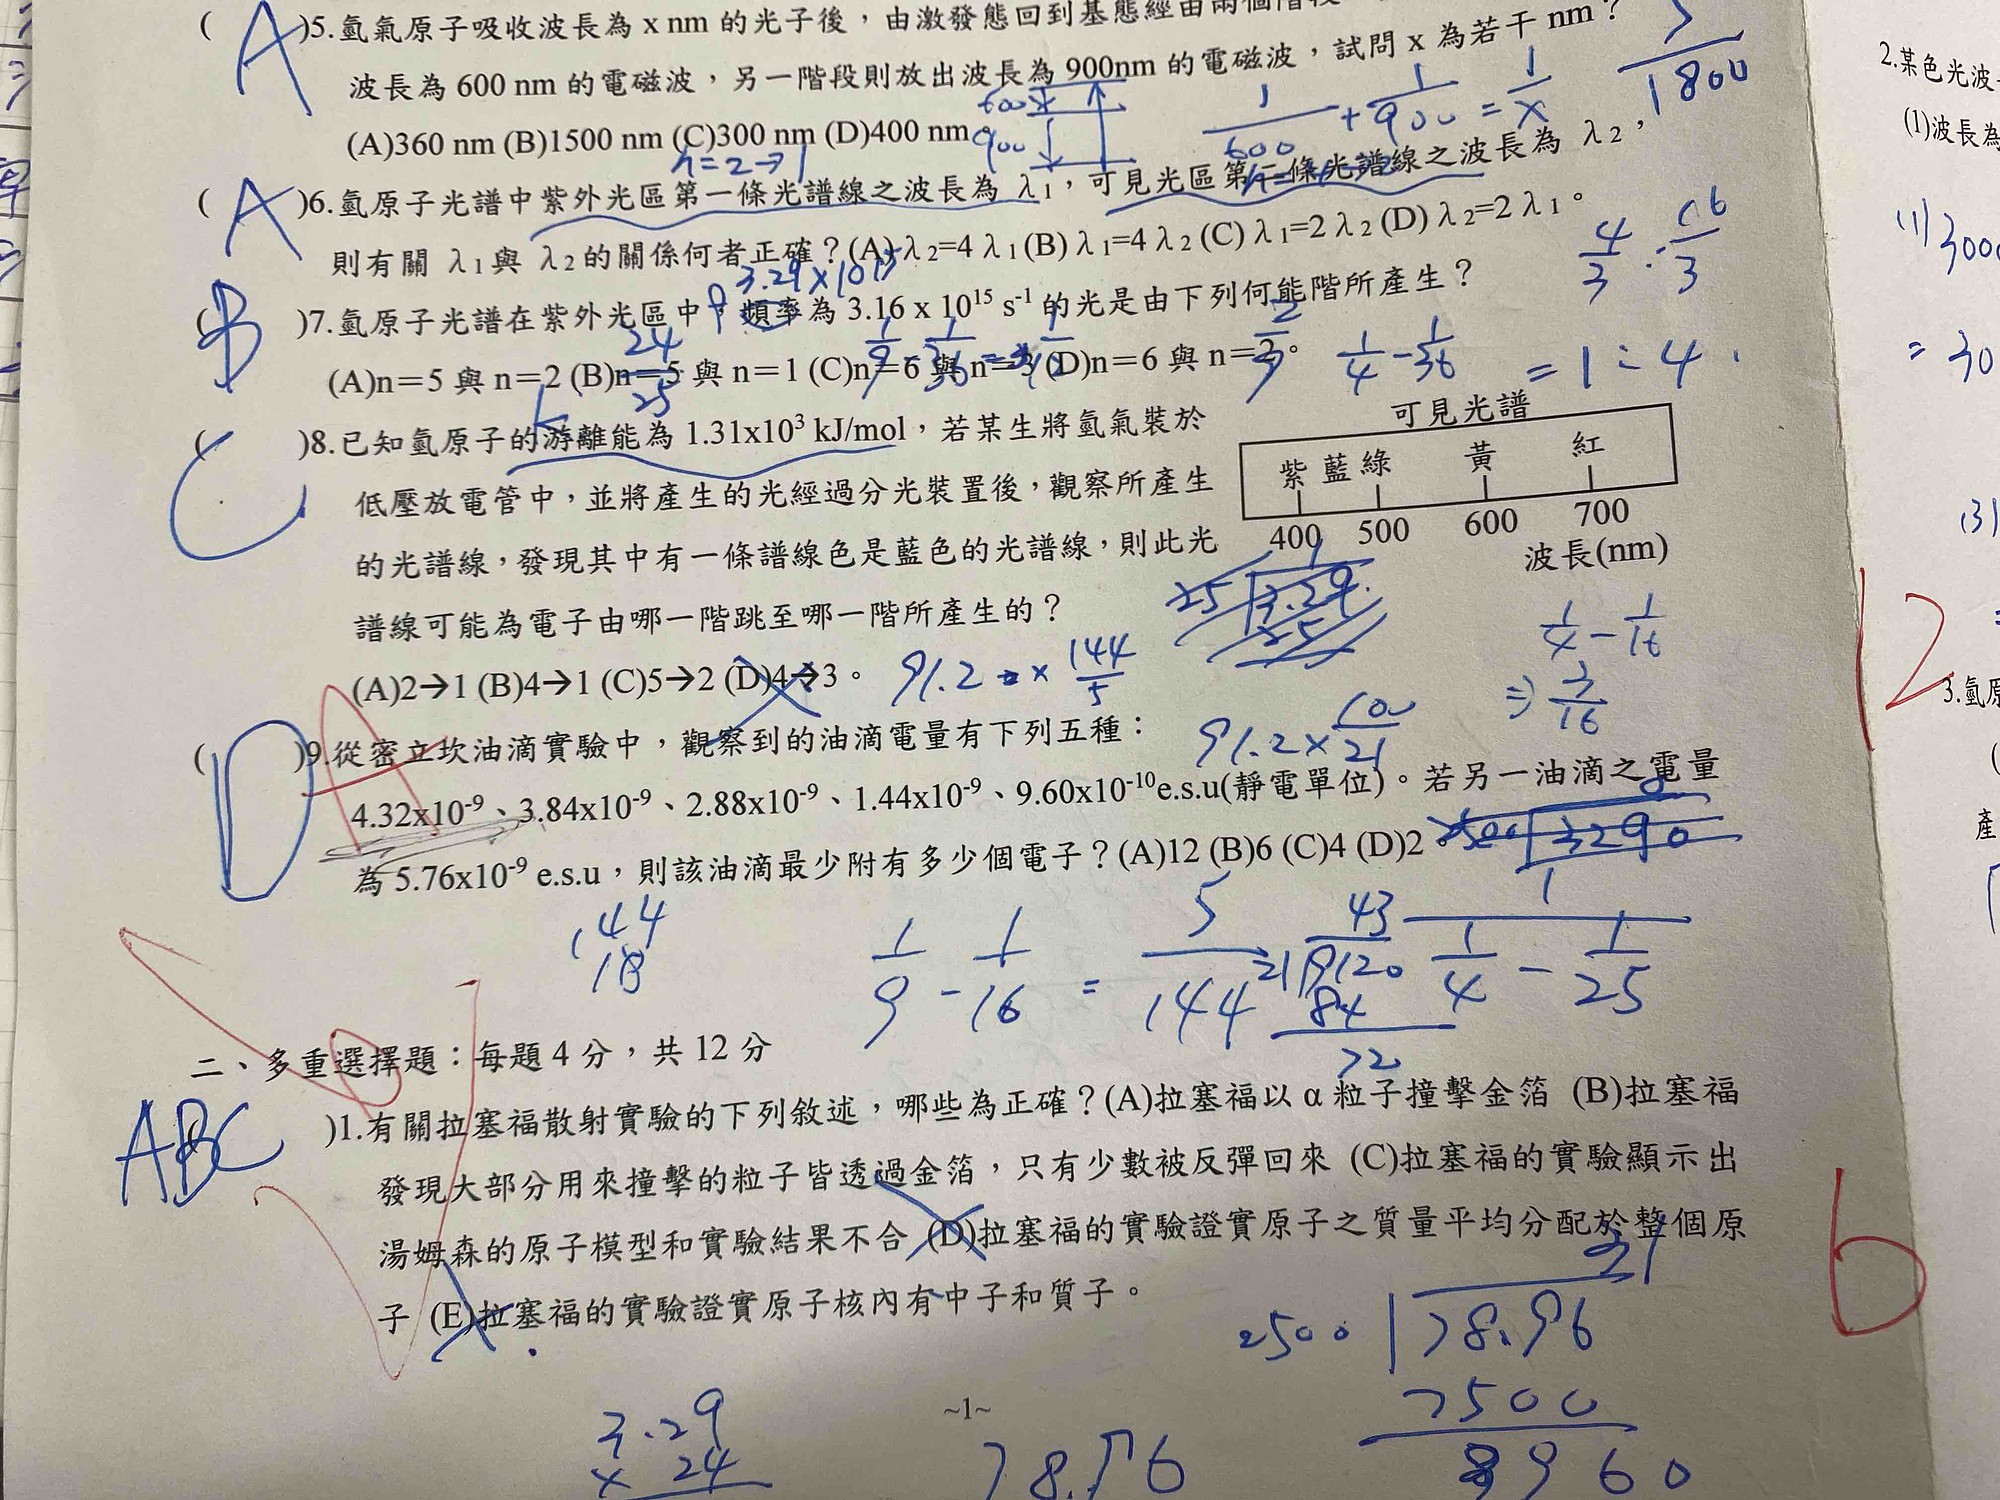 A
( )5.氫氣原子吸收波長為 x nm 的光子後，由激發態回到基態經由兩個階段
波長為 600 nm 的電磁波，另一階段則放出波長為 900nm 的電磁波，試問 x 為若干 nm？
(A)360 nm (B)1500 nm (C)300 nm (D)400 nm。
600
900
1/600 + 1/900 = 1/x
5/1800
n=2→1
A
( )6.氫原子光譜中紫外光區第一條光譜線之波長為 λ1，可見光區第二條光譜線之波長為 λ2，
則有關 λ1與 λ2的關係何者正確？(A) λ2=4 λ1 (B) λ1=4 λ2 (C) λ1=2 λ2 (D) λ2=2 λ1。
4/3 : 16/3
= 1 : 4
3.29×10^15
B
( )7.氫原子光譜在紫外光區中，頻率為 3.16 x 10^15 s^-1 的光是由下列何能階所產生？
(A)n＝5 與 n＝2 (B)n＝5 與 n＝1 (C)n＝6 與 n＝3 (D)n＝6 與 n＝2。
24/25
1/4 - 1/36
C
( )8.已知氫原子的游離能為 1.31x10^3 kJ/mol，若某生將氫氣裝於
低壓放電管中，並將產生的光經過分光裝置後，觀察所產生
的光譜線，發現其中有一條譜線色是藍色的光譜線，則此光
譜線可能為電子由哪一階跳至哪一階所產生的？
(A)2→1 (B)4→1 (C)5→2 (D)4→3。
可見光譜
紫 藍 綠 黃 紅
400 500 600 700
波長(nm)
91.2 × 144/5
91.2 × 100/21
1/4 - 1/16
⇒ 3/16
D A
( )9.從密立坎油滴實驗中，觀察到的油滴電量有下列五種：
4.32x10^-9、3.84x10^-9、2.88x10^-9、1.44x10^-9、9.60x10^-10e.s.u(靜電單位)。若另一油滴之電量
為 5.76x10^-9 e.s.u，則該油滴最少附有多少個電子？(A)12 (B)6 (C)4 (D)2
144
18
1/9 - 1/16 = 5/144
43
21 9120
84
72
1
1/4 - 1/25
二、多重選擇題：每題 4 分，共 12 分
ABC
)1.有關拉塞福散射實驗的下列敘述，哪些為正確？(A)拉塞福以 α 粒子撞擊金箔 (B)拉塞福
發現大部分用來撞擊的粒子皆透過金箔，只有少數被反彈回來 (C)拉塞福的實驗顯示出
湯姆森的原子模型和實驗結果不合 (D)拉塞福的實驗證實原子之質量平均分配於整個原
子 (E)拉塞福的實驗證實原子核內有中子和質子。
31
2500 78.96
7500
3960
3.29
× 24
78.96
~1~
2.某色光波
(1)波長為
(1) 3000
= 30
(3)
12
3.氫原
(
產
6